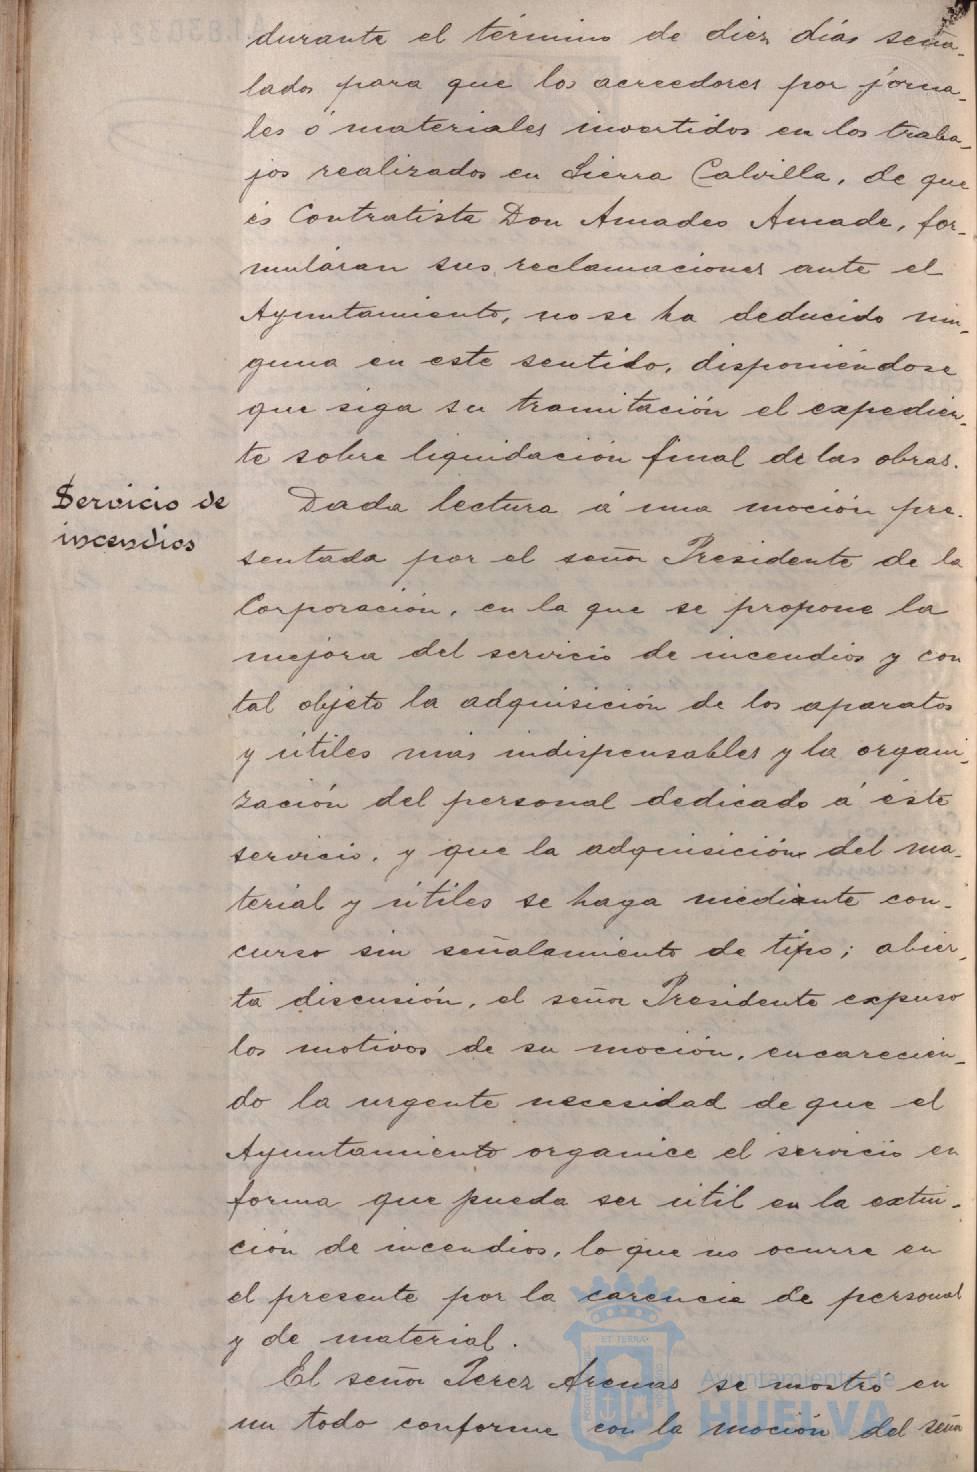 durante el término de diez días seña-
lados para que los acreedores por jorna-
les ó materiales invertidos en los traba-
jos realizados en Sierra Calvilla, de que
és Contratista Don Amadeo Amade, for-
muláran sus reclamaciones ante el
Ayuntamiento, no se ha deducido nin-
guna en este sentido, disponiéndose
que siga su tramitación el expedien-
te sobre liquidación final de las obras.
Servicio de
incendios
Dada lectura á una moción pre-
sentada por el señor Presidente de la
Corporación, en la que se propone la
mejora del servicio de incendios y con
tal objeto la adquisición de los aparatos
y útiles mas indispensables y la organi-
zación del personal dedicado á éste
servicio, y que la adquisición del ma-
terial y útiles se haga mediante con-
curso sin señalamiento de tipo; abier-
ta discusión, el señor Presidente expuso
los motivos de su moción, encarecien-
do la urgente necesidad de que el
Ayuntamiento organice el servicio en
forma que pueda ser útil en la extin-
ción de incendios, lo que no ocurre en
el presente por la carencia de personal
y de material.
El señor Perez Arenas se mostró en
un todo conforme con la moción del señor
Ayuntamiento de
HUELVA